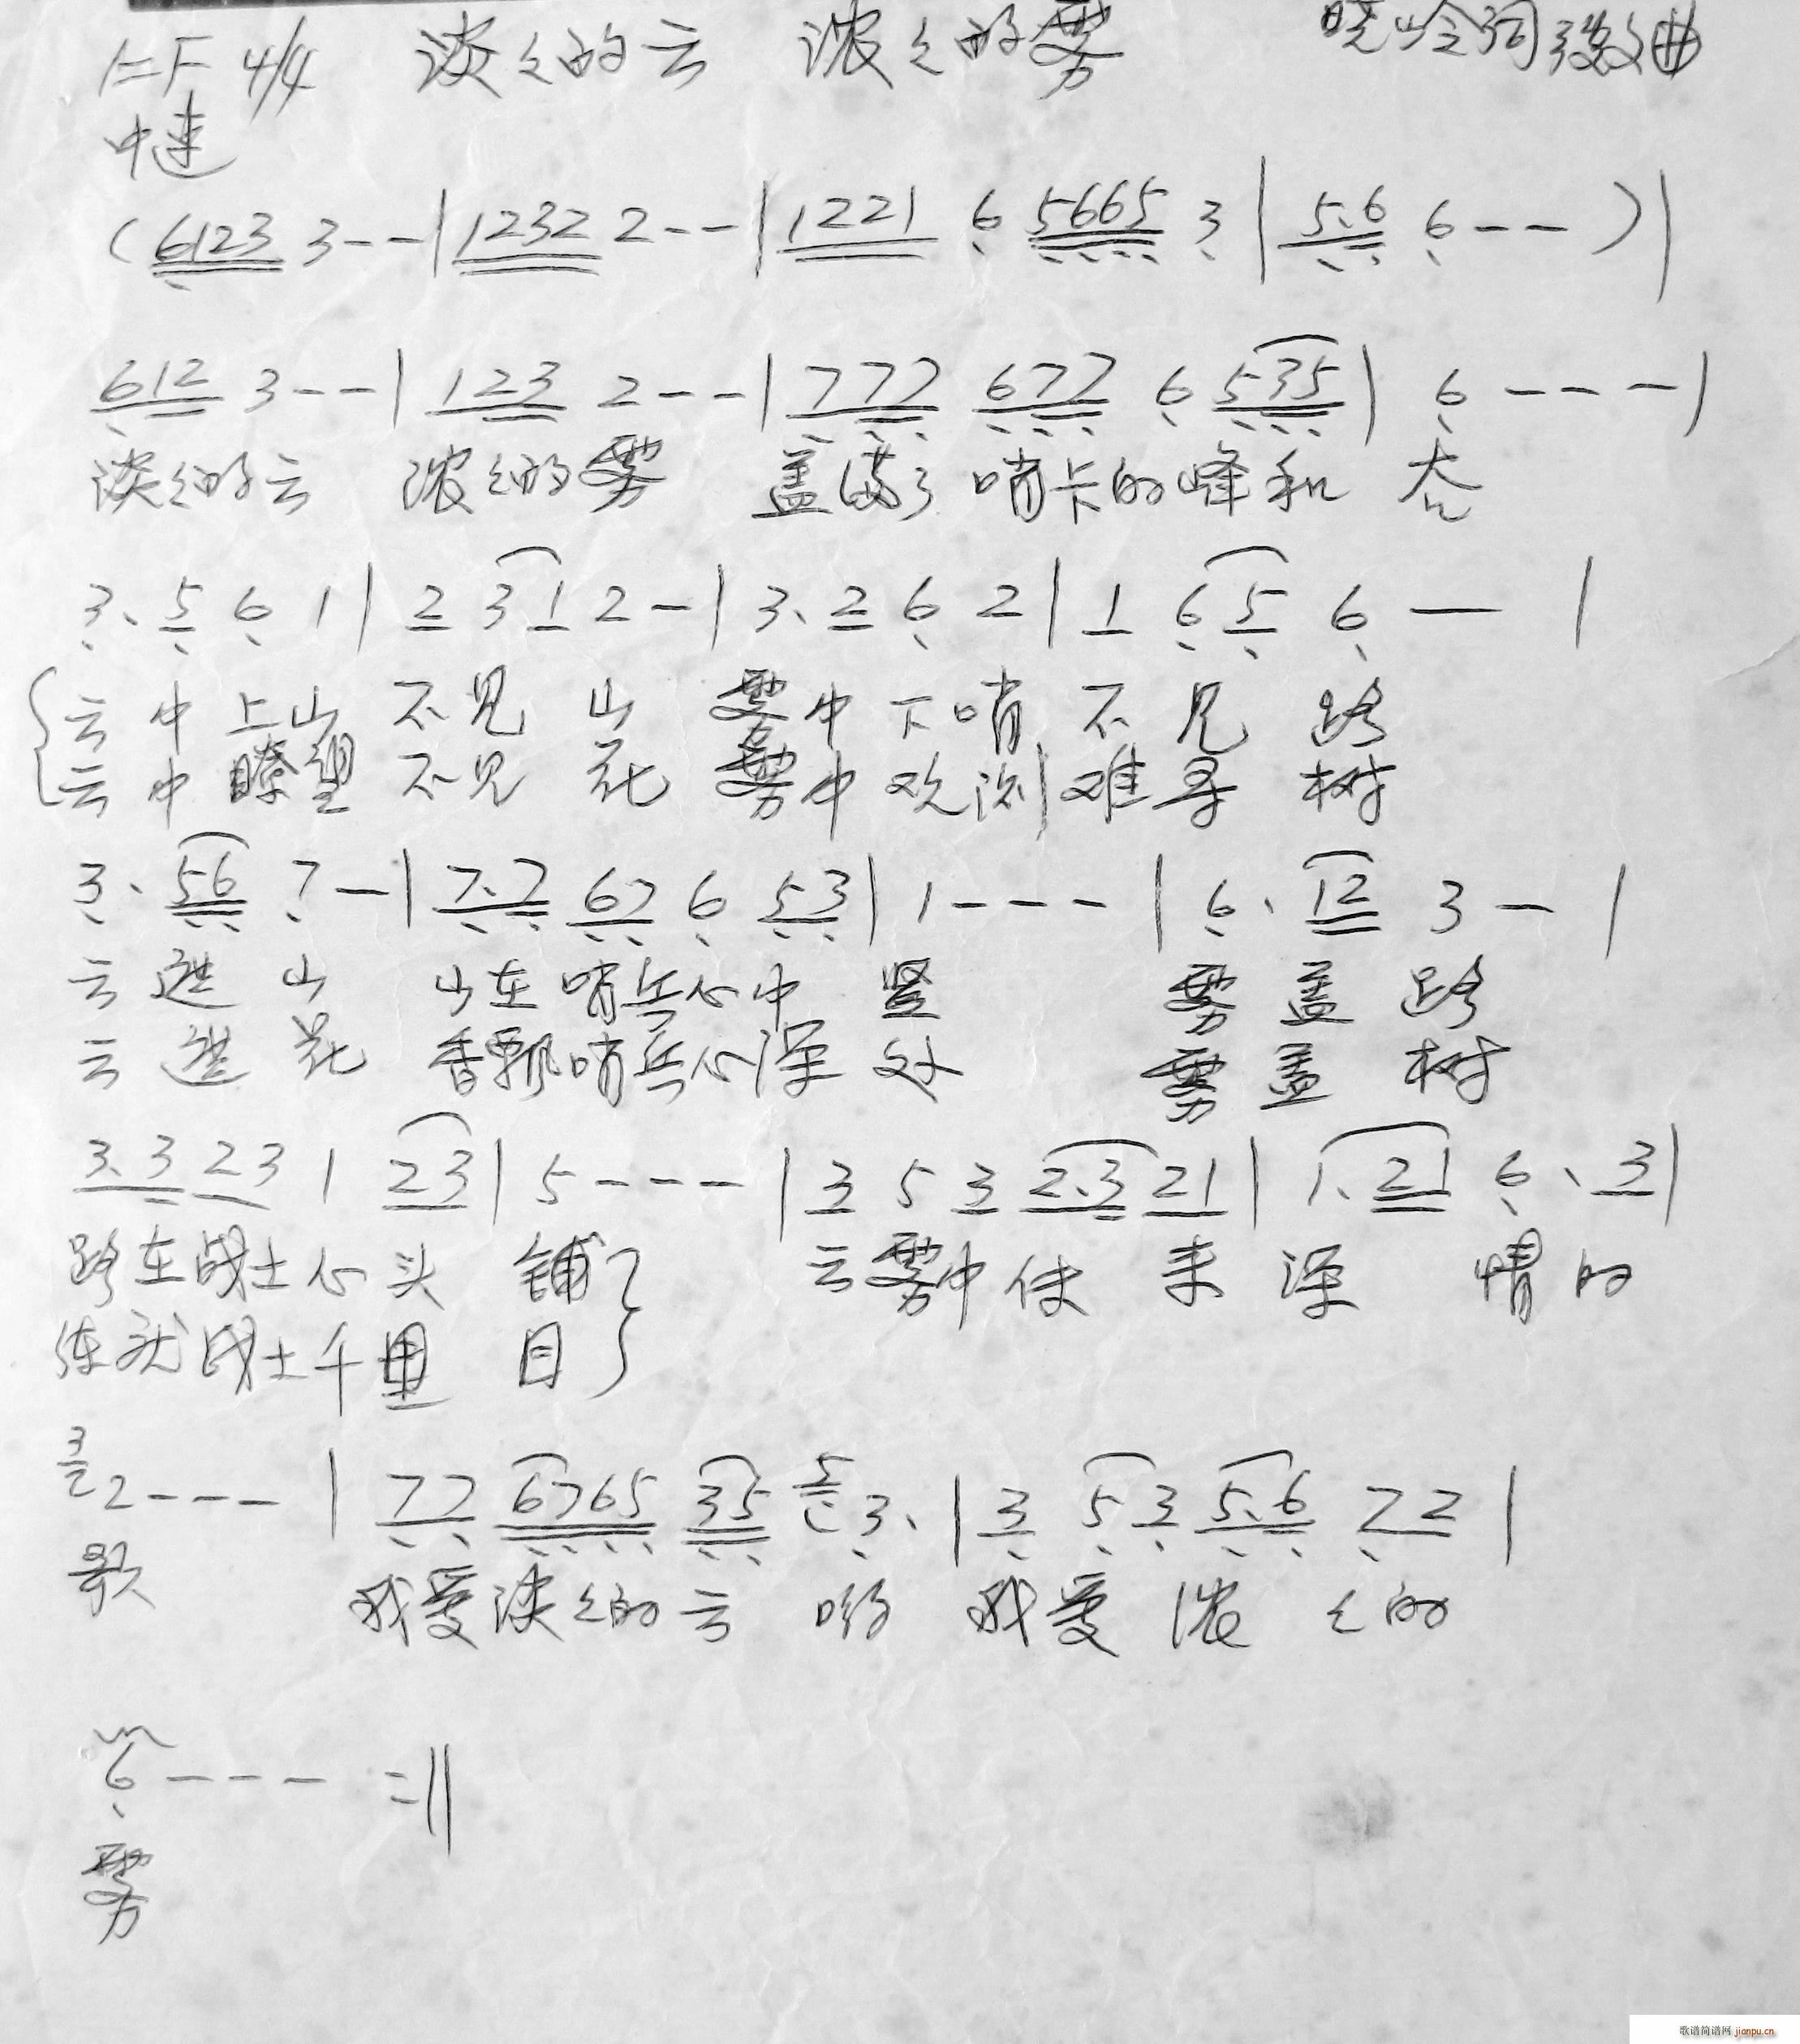 1=F 4/4 淡々的云 浓々的雾 晓岭词 曲
中速
(6123 3--|1232 2--|1221 6 5665 3|5.6 6--)|
612 3--|123 2--|777 677 6 535|6---|
淡々的云 浓々的雾 盖满了哨卡的峰和谷
3.5 6 1|2 3 1 2-|3.2 6 2|1 6 5 6—|
云中上山不见山 雾中下哨不见路
云中瞭望不见花 雾中观测难寻树
3.56 7-|7.7 67 6 53|1---|6.12 3-|
云遮山 山在哨兵心中竖 雾盖路
云遮花 香飘哨兵心深处 雾盖树
3.3 23 1 23|5---|3 5 3 2.3 21|1.21 6.3|
路在战士心头铺 云雾中传来深情的
练就战士千里目
3 2 2---|77 6765 35 5 3.|3 5 3 5.6 72|
歌 我爱淡々的云哟 我爱浓々的
6---=||
雾
歌谱简谱网 jianpu.cn